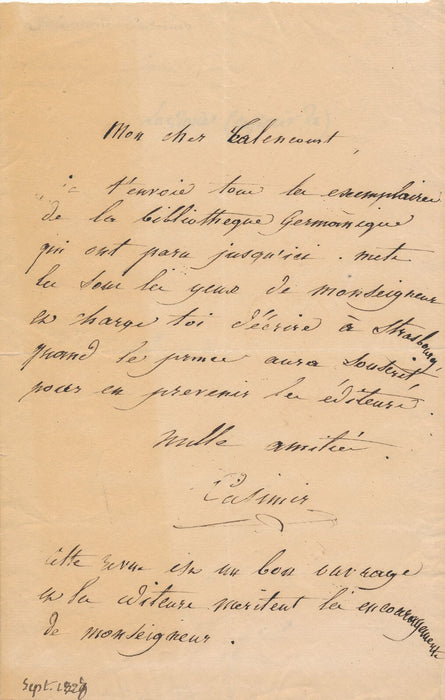 Mon cher Calencourt,
je t'envoie tous les exemplaires
de la bibliothèque Germanique
qui ont paru jusqu'ici. mets
les sous les yeux de monseigneur
et charge toi d'écrire à Strasbourg,
quand le prince aura souscrit
pour en prevenir les éditeurs.
mille amitiés.
Casimir
cette revue est un bon ouvrage
et les editeurs meritent les encouragements
de monseigneur.
Sept.